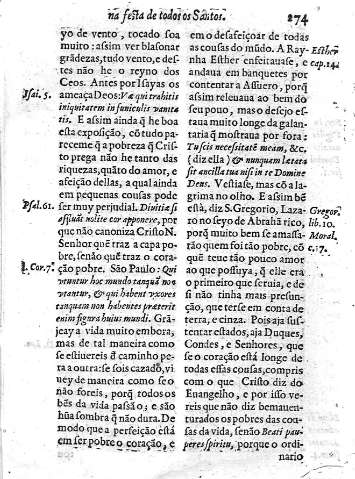 na festa de todos os Santos. 274
yo de vento, tocado soa
muito: assim ver blasonar
grãdezas, tudo vento, e des-
tes não he o reyno dos
Ceos. Antes por Isayas os
Isai. 5.
ameaça Deos: Væ qui trahitis
iniquitatem in funiculis vanita
tis. E assim ainda q̃ he boa
esta exposição, cõ tudo pa-
receme q̃ a pobreza q̃ Cris-
to prega não he tanto das
riquezas, quãto do amor, e
afeição dellas, a qual ainda
em pequenas cousas pode
Psal. 61.
ser muy perjudicial. Divitiæ si
affluãt nolite cor apponere, por
que não canoniza Cristo N.
Senhor quẽ traz a capa po-
bre, senão quẽ traz o cora-
1. Cor. 7.
ção pobre. São Paulo: Qui
utuntur hoc mundo tanquã non
utantur, & qui habent uxores
tanquam non habentes præterit
enim figura huius mundi. Grã-
jeay a vida muito embora,
mas de tal maneira como
se estiuereis d̃ caminho pe-
ra a outra: se sois cazadõ, vi
uey de maneira como se o
não foreis, porq̃ todos os
bẽs da vida passão; e são
hũa sombra q̃ não dura. De
modo que a perfeição está
em ser pobre o coração, e
em o desafeiçoar de todas
as cousas do mũdo. A Ray-
Esther
nha Esther enfeitauase, e
cap. 14.
andaua em banquetes por
contentar a Assuero, porq̃
assim releuaua ao bem do
seu pouo, mas o desejo es-
taua muito longe da galan-
taria q̃ mostraua por fora:
Tu scis necessitatẽ meam, &c,
(diz ella) & nunquam lætata
sit ancilla tua nisi in te Domine
Deus. Vestiase, mas cõ a la-
grima no olho. E assim bẽ
està, diz S. Gregorio, Laza-
Gregor.
ro no seyo de Abrahã rico,
lib. 10.
porq̃ muito bem se amassa-
Moral.
rão quem foi tão pobre, cõ
c. 17.
quẽ teue tão pouco amor
ao que possuya, q̃ elle era
o primeiro que seruia, e de
si não tinha mais presun-
ção, que terse em conta de
terra, e cinza. Pois aja sus-
tentar estados, aja Duques,
Condes, e Senhores, que
se o coração està longe de
todas essas cousas, compris
com o que Cristo diz do
Euangelho, e por isso ve-
reis que não diz bemauen-
turados os pobres das cou-
sas da vida, senão Beati pau-
peres spiritu, porque o ordi-
nario